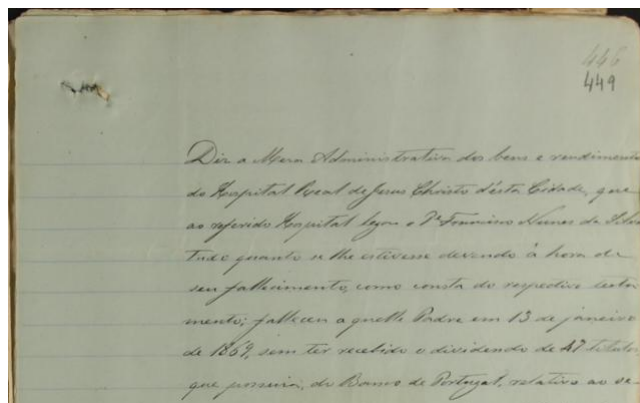 448
449
Diz a Mesa Administrativa dos bens e rendimento
do Hospital Real de Jesus Christo d'esta Cidade, que
ao referido Hospital legou o Pe Francisco Nunes da Silva
tudo quanto se lhe estivesse devendo á hora de
seu fallecimento, como consta do respectivo testa
mento; falleceu aquelle Padre em 13 de janeiro
de 1869, sem ter recebido o dividendo de 47 titulos
que possuia, do Banco de Portugal, relativo ao se-